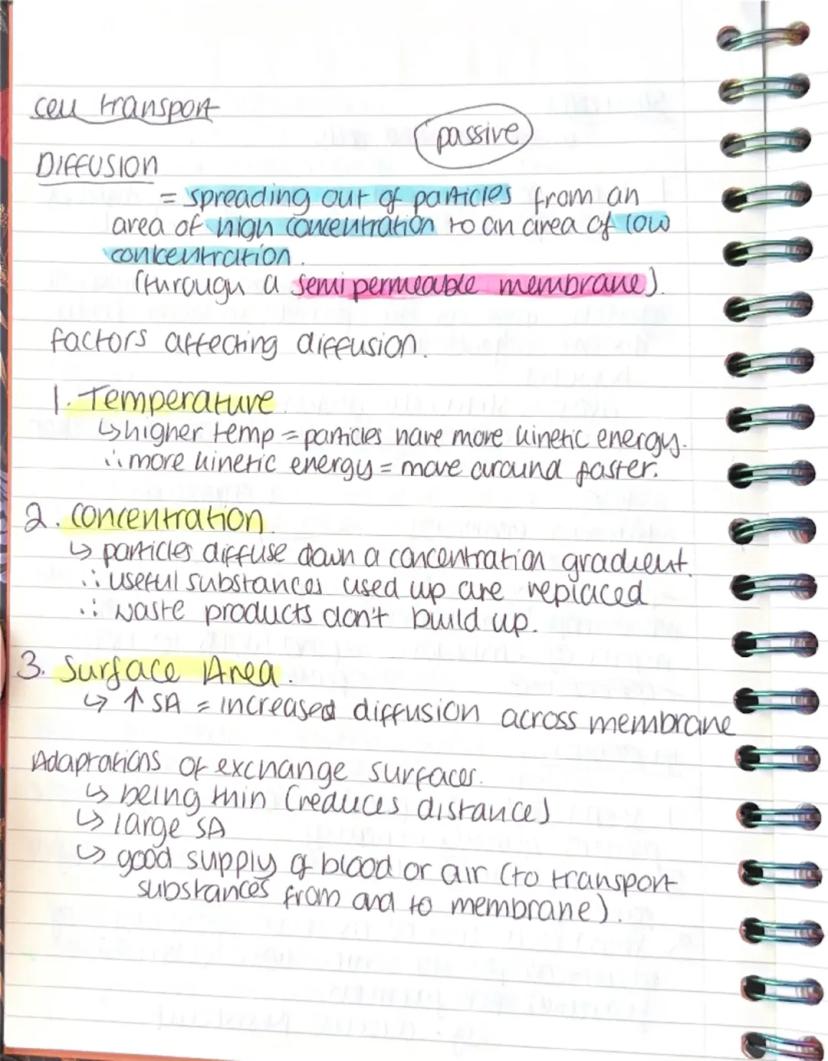 cell transport
passive
DIFFUSION
= spreading out of particles from an
area of high concentration to an area of low
concentration.
(through a semi permeable membrane).
factors affecting diffusion.
1. Temperature
↳ higher temp = particles have more kinetic energy.
∴ more kinetic energy = move around faster.
2. concentration
↳ particles diffuse down a concentration gradient.
∴ useful substances used up are replaced
∴ waste products don't build up.
3. Surface Area.
↳ ↑ SA = increased diffusion across membrane
Adaptations of exchange surfaces.
↳ being thin (reduces distance)
↳ large SA
↳ good supply of blood or air (to transport
substances from and to membrane).